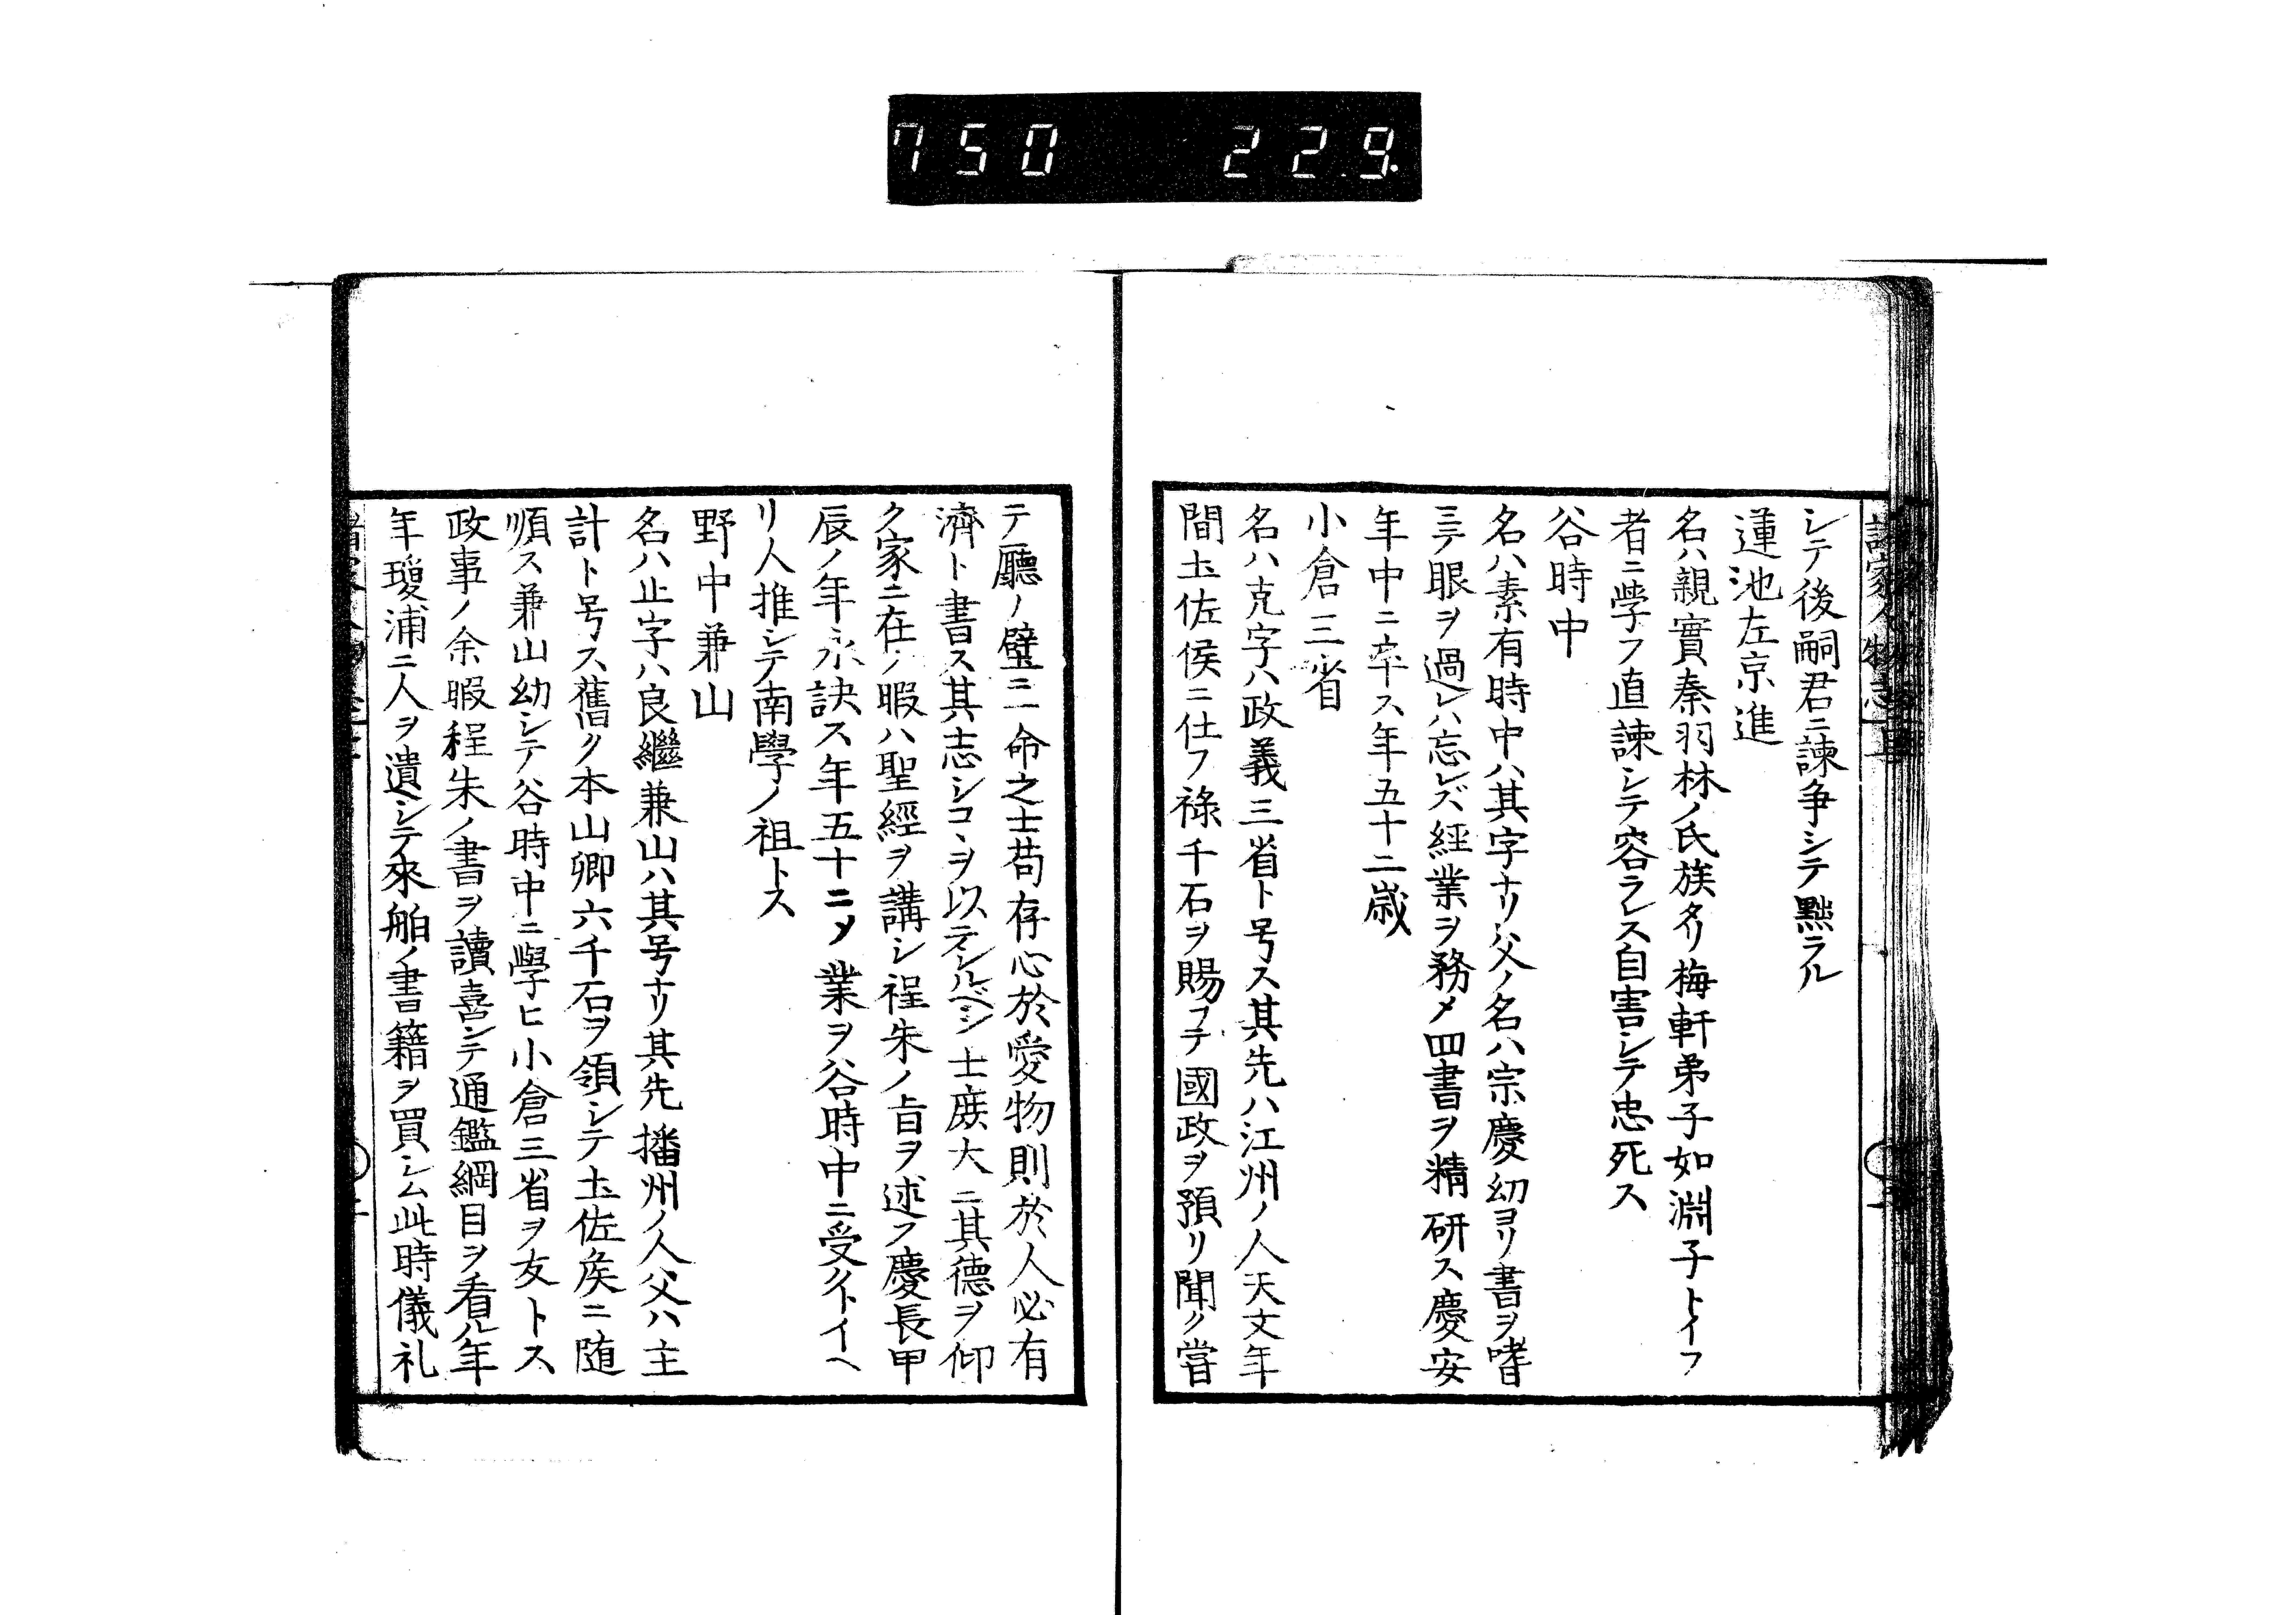 750 229.
シテ後嗣君ニ諫争シテ黜ラル
蓮池左京進
名ハ親實秦羽林ノ氏族タリ梅軒弟子如淵子トイフ
者ニ學フ直諫シテ容ラレス自害シテ忠死ス
谷時中
名ハ素有時中ハ其字ナリ父ノ名ハ宗慶幼ヨリ書ヲ嗜
ミテ眼ヲ過レハ忘レズ經業ヲ務メ四書ヲ精研ス慶安
年中ニ卒ス年五十二歳
小倉三省
名ハ克字ハ政義三省ト号ス其先ハ江州ノ人天文年
間土佐侯ニ仕フ祿千石ヲ賜フテ國政ヲ預リ聞ク嘗
テ廳ノ壁ニ一命之士苟存心於愛物則於人必有
濟ト書ス其志シコヽヲ以テシルベシ士庶大ニ其德ヲ仰
ク家ニ在ノ暇ハ聖經ヲ講シ程朱ノ旨ヲ述フ慶長甲
辰ノ年永訣ス年五十二ソノ業ヲ谷時中ニ受クトイヘ
リ人推シテ南學ノ祖トス
野中兼山
名ハ止字ハ良繼兼山ハ其号ナリ其先播州ノ人父ハ主
計ト号ス舊ク本山鄉六千石ヲ領シテ土佐矦ニ随
順ス兼山幼シテ谷時中ニ學ヒ小倉三省ヲ友トス
政事ノ余暇程朱ノ書ヲ讀喜シテ通鑑綱目ヲ看ル年
年瓊浦ニ人ヲ遺シテ來舶ノ書籍ヲ買シム此時儀礼